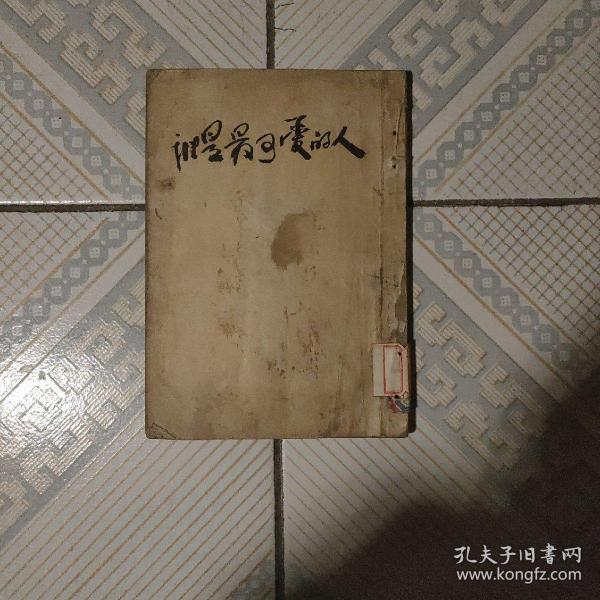 谁是最可爱的人
孔夫子旧書网
www.kongfz.com